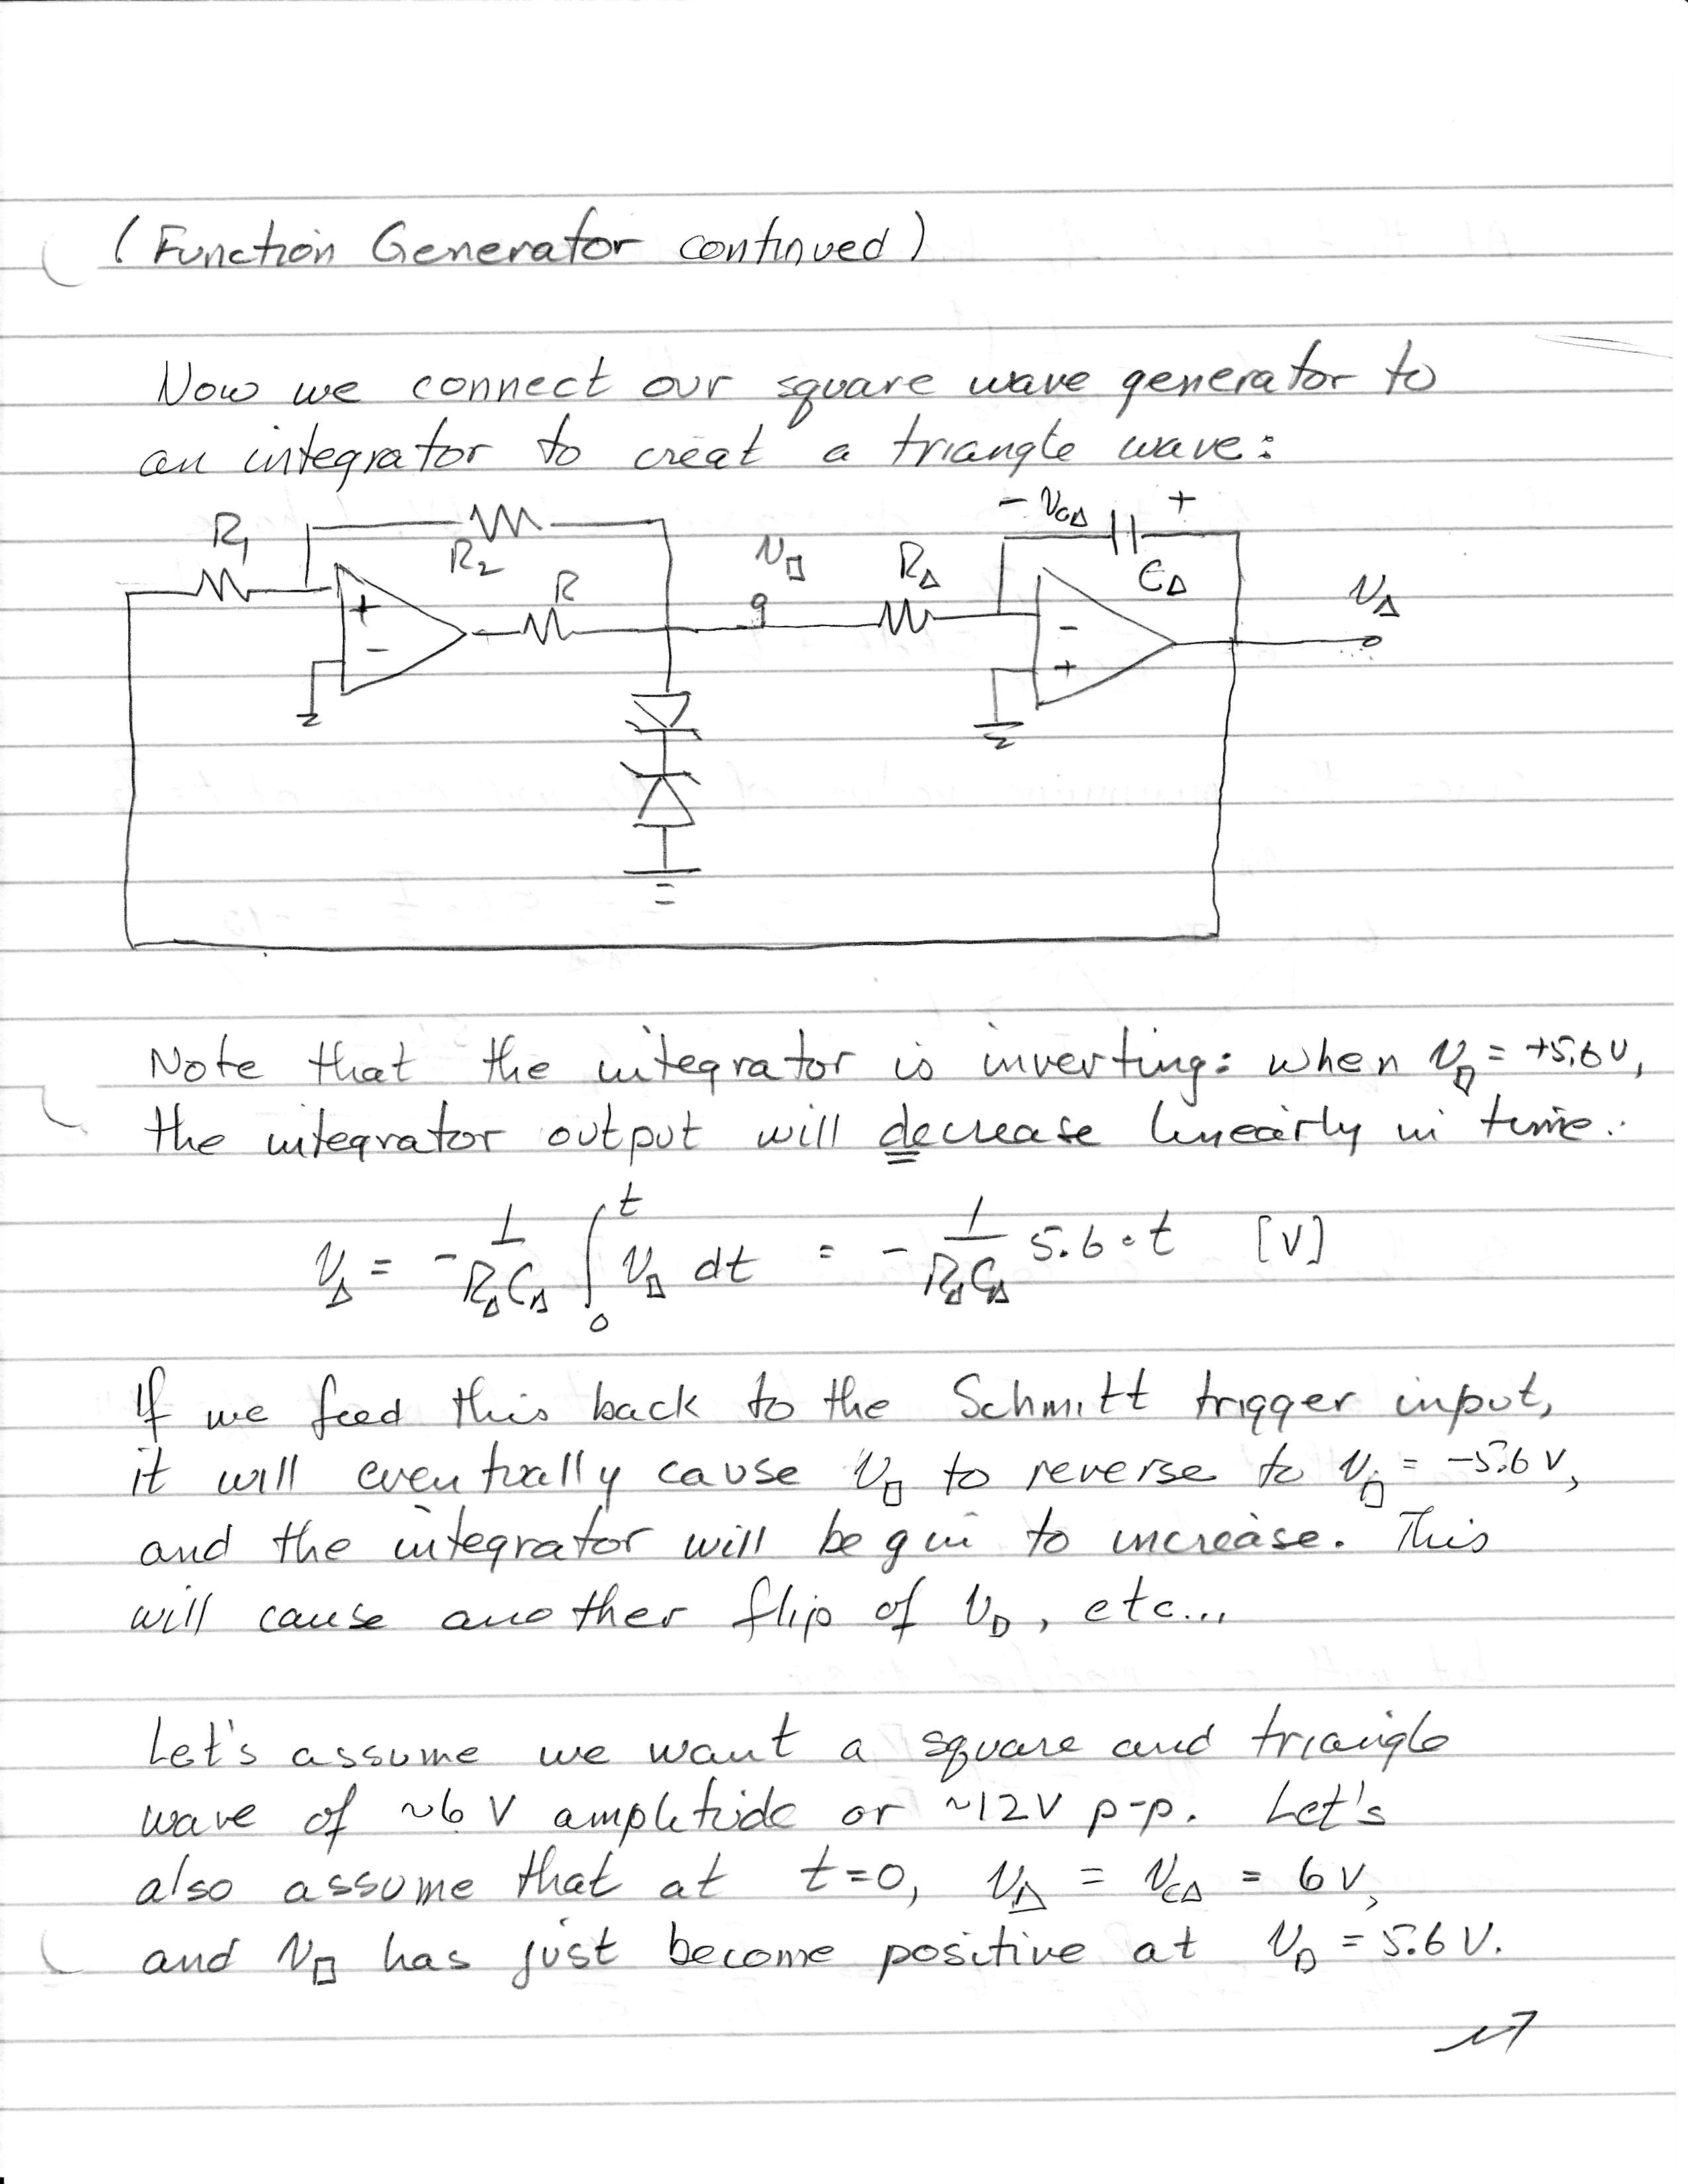 (Function Generator continued)
Now we connect our square wave generator to
an integrator to creat a triangle wave:
- V_C△ +
R₁
R₂
R
V_□
R_△
C_△
V_△
+
-
-
+
Note that the integrator is inverting: when V_□ = +5.6V,
the integrator output will decrease linearly in time.
V_△ = - 1/(R_△C_△) ∫₀ᵗ V_□ dt = - 1/(R_△C_△) 5.6·t [V]
If we feed this back to the Schmitt trigger input,
it will eventually cause V_□ to reverse to V_□ = -5.6 V,
and the integrator will begin to increase. This
will cause another flip of V_□, etc...
Let's assume we want a square and triangle
wave of ~6 V ampletude or ~12V p-p. Let's
also assume that at t=0, V_△ = V_C△ = 6 V,
and V_□ has just become positive at V_□ = 5.6 V.